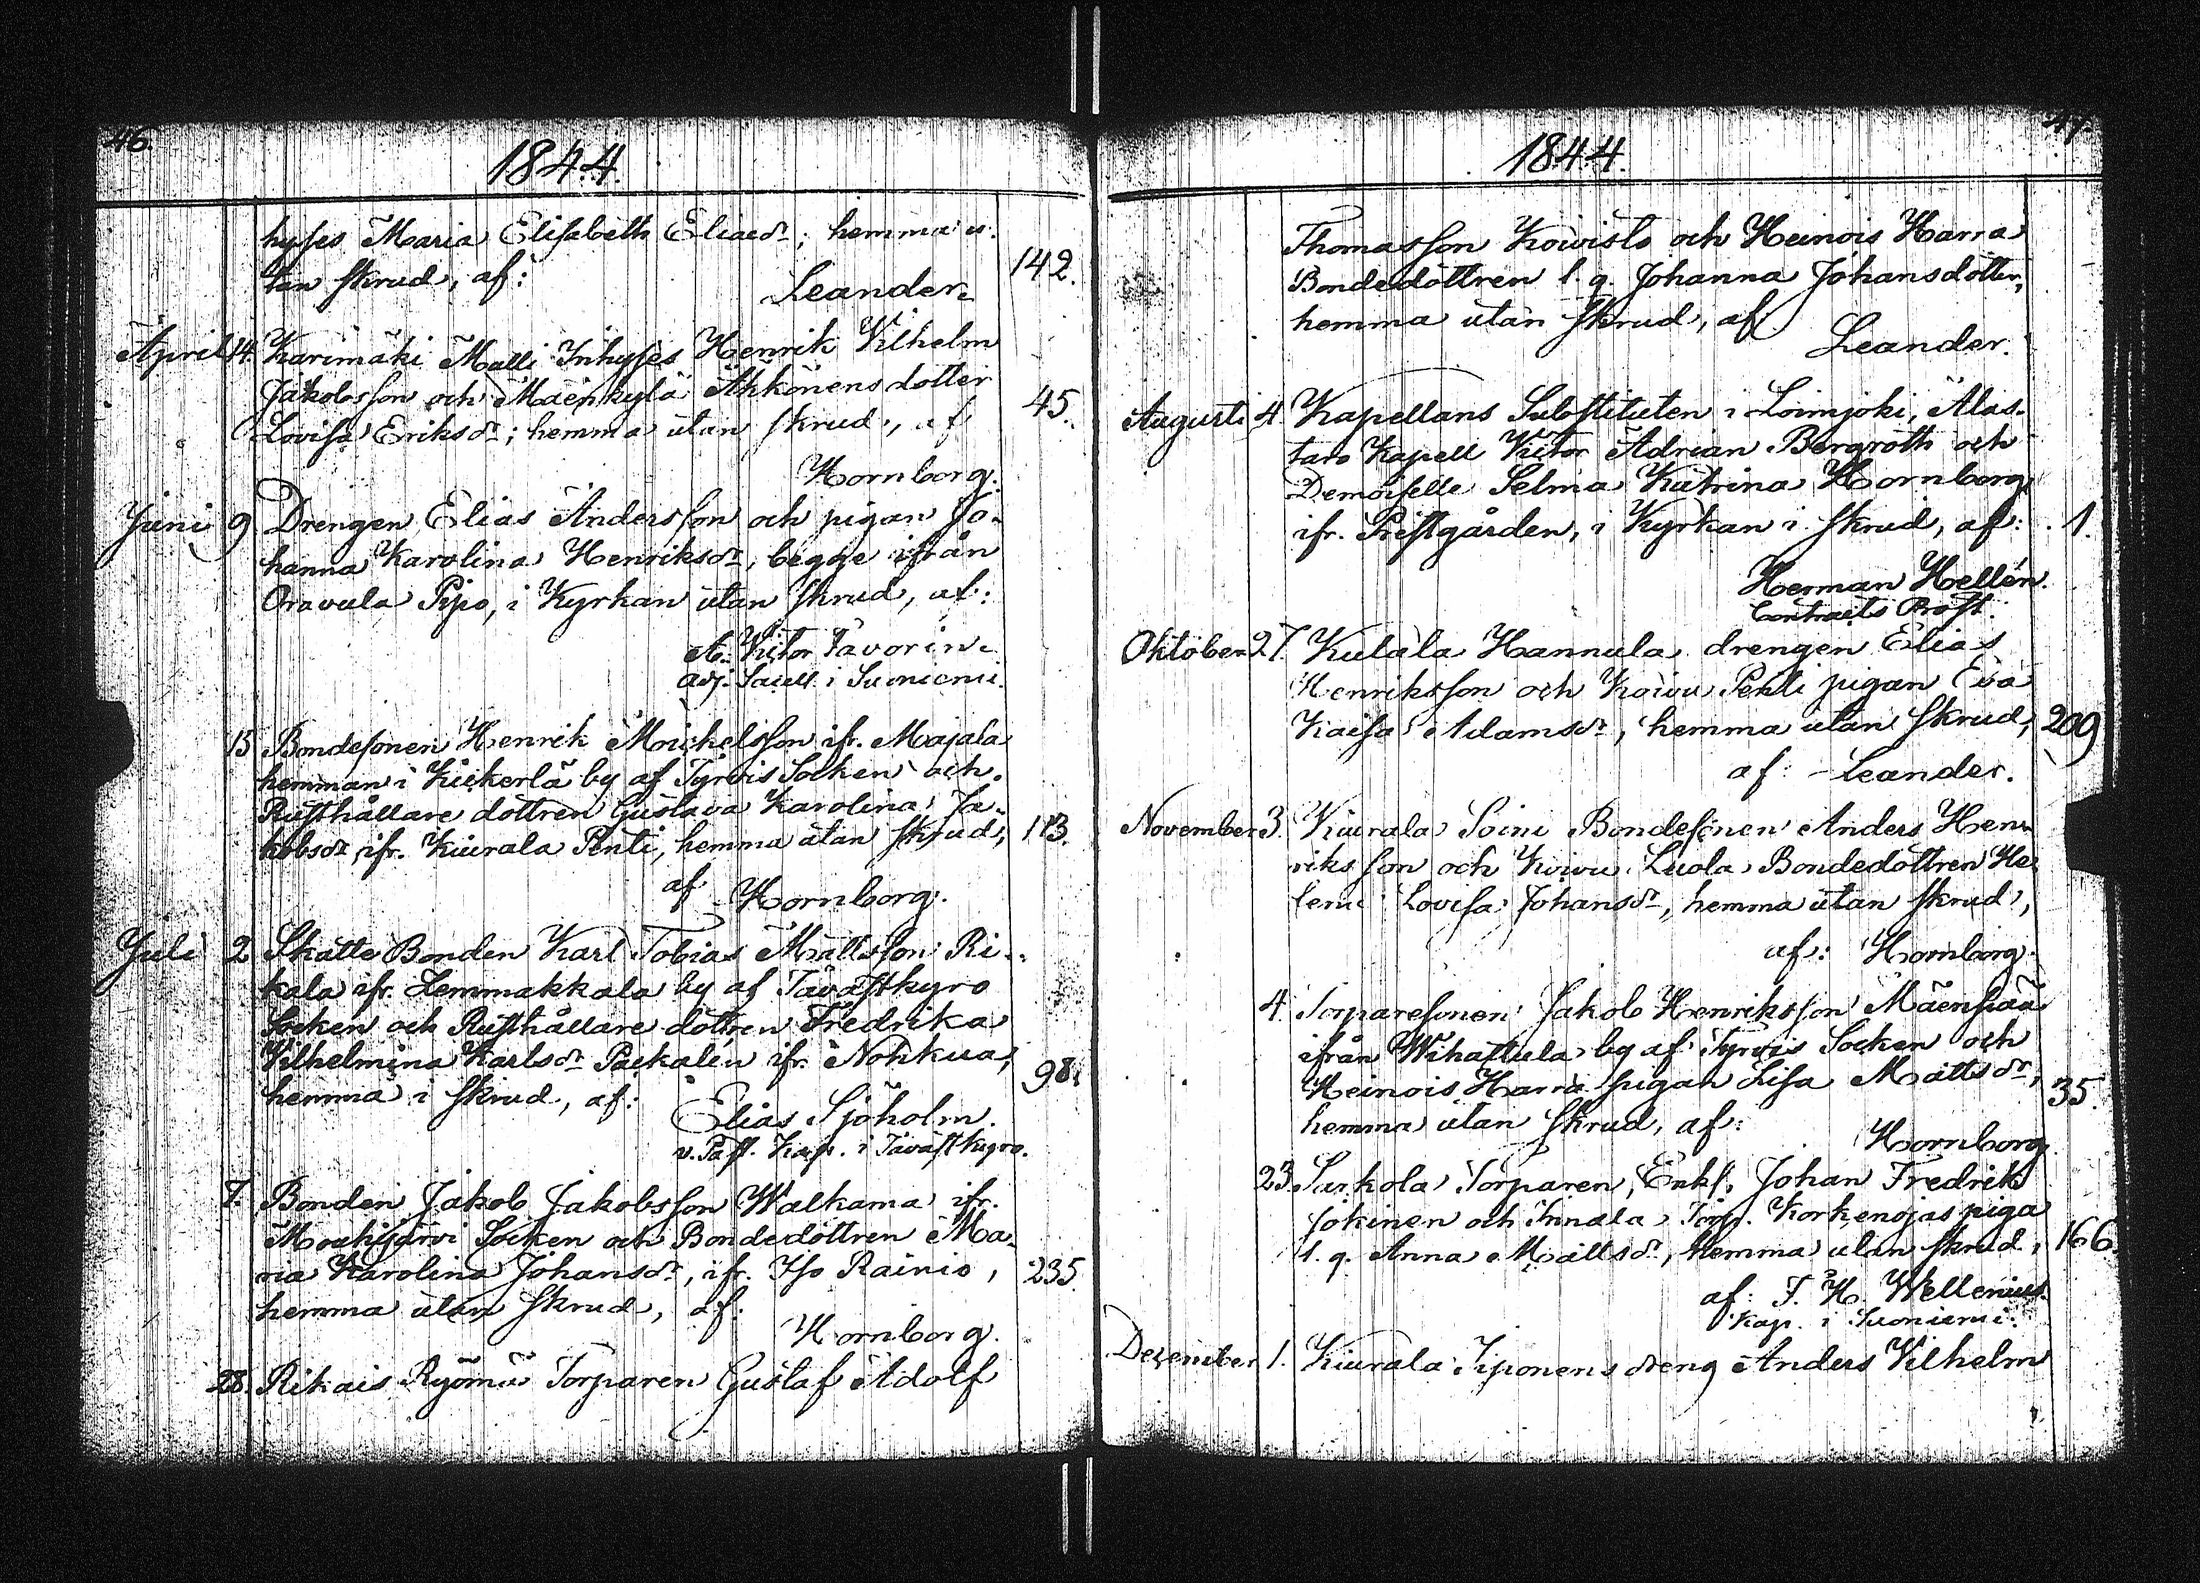 46.
1844.
hyses Maria Elisabeth Eliaedr; hemma u-
tan skrud, af: 142.
Leander.
April 14. Karimäki Matti Inhyses Henrik Vilhelm
Jakobsson och Mäenkylä Ähkönens dotter 45.
Lovisa Eriksdr; hemma utan skrud, af
Hornborg.
Juni 9 Drengen Elias Andersson och pigan Jo-
hanna Karolina Henriksdr, begge ifrån
Oravula Pipo, i Kyrkan utan skrud, af:
A. Viktor Favorin.
Adj. Sacell. i Suoniemi.
15 Bondesonen Henrik Michelsson ifr. Majala
hemman i Kiikerlä by af Tyrvis Socken och
Rusthållare dottren Gustava Karolina Ja-
kobsdr, ifr. Kiurala Penti, hemma utan skrud, 113.
af Hornborg.
Juli 2 Skatte Bonden Karl Tobias Mattsson Ri-
kala ifr. Lemmakkala by af Tavastkyro
Socken och Rusthållare dottren Fredrika
Vilhelmina Karlsdr Packalén ifr. Nohkua, 98.
hemma i skrud, af:
Elias Sjöholm.
v. Past. Kap. i Tavastkyro.
7. Bonden Jakob Jakobsson Walkama ifr.
Mouhijärvi Socken och Bondedottren Ma-
ria Karolina Johansdr, ifr. Iso Rainio, 235.
hemma utan skrud, af:
Hornborg.
28. Rikais Ryömä Torparen Gustaf Adolf
47.
1844.
Thomasson Koivisto och Heinois Harra
Bondedottren l. q. Johanna Johansdotter,
hemma utan skrud, af
Leander.
Augusti 4. Kapellans Substituten i Loimjoki, Alas-
taro Kapell Viktor Adrian Bergroth och
Demoiselle Selma Katrina Hornborg
ifr. Prestgården, i Kyrkan i skrud, af: 1.
Herman Hellén.
Contracts Prost.
Oktober 27. Kulala Hannula drengen Elias
Henriksson och Koivu Penti pigan Eva
Kaisa Adamsdr, hemma utan skrud, 209
af: Leander.
November 3. Kiurala Soini Bondesonen Anders Hen-
riksson och Koivu Luola Bondedottren He-
lena Lovisa Johansdr, hemma utan skrud,
af: Hornborg.
4. Torparesonen Jakob Henriksson Mäenpää
ifrån Wihattula by af Tyrvis Socken och
Heinois Harra pigan Lisa Mattsdr, 35.
hemma utan skrud, af:
Hornborg
23. Sarkola Torparen, Enkl. Johan Fredrik
Jokinen och Innala Torp. Korkenojas piga
l. q. Anna Mattsdr, hemma utan skrud, 166.
af: F. H. Wellenius.
Kap. i Suoniemi.
Dezember 1. Kiurala Piponens dreng Anders Vilhelm